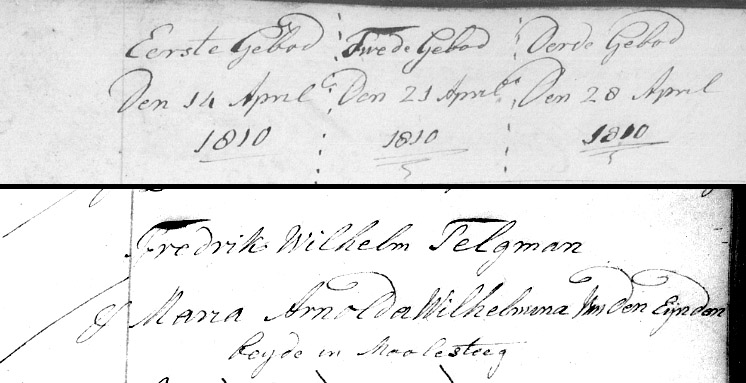 Eerste Gebod Twede Gebod Derde Gebod
Den 14 April Den 21 April Den 28 April
1810 1810 1810
Fredrik Wilhelm Telgman
& Maria Arnolda Wilhelmina Van den Eijnden
beyde in Moolesteeg